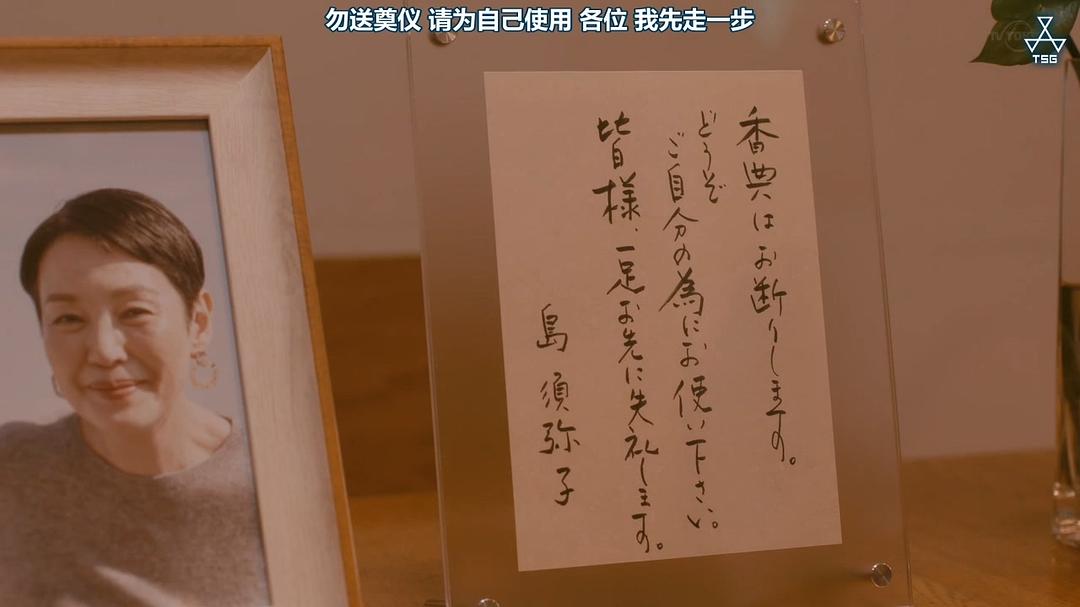 勿送奠仪 请为自己使用 各位 我先走一步
TSG
香典はお断りします。
どうぞ
ご自分の為にお使い下さい。
皆様、一足お先に失礼します。
島 須弥子